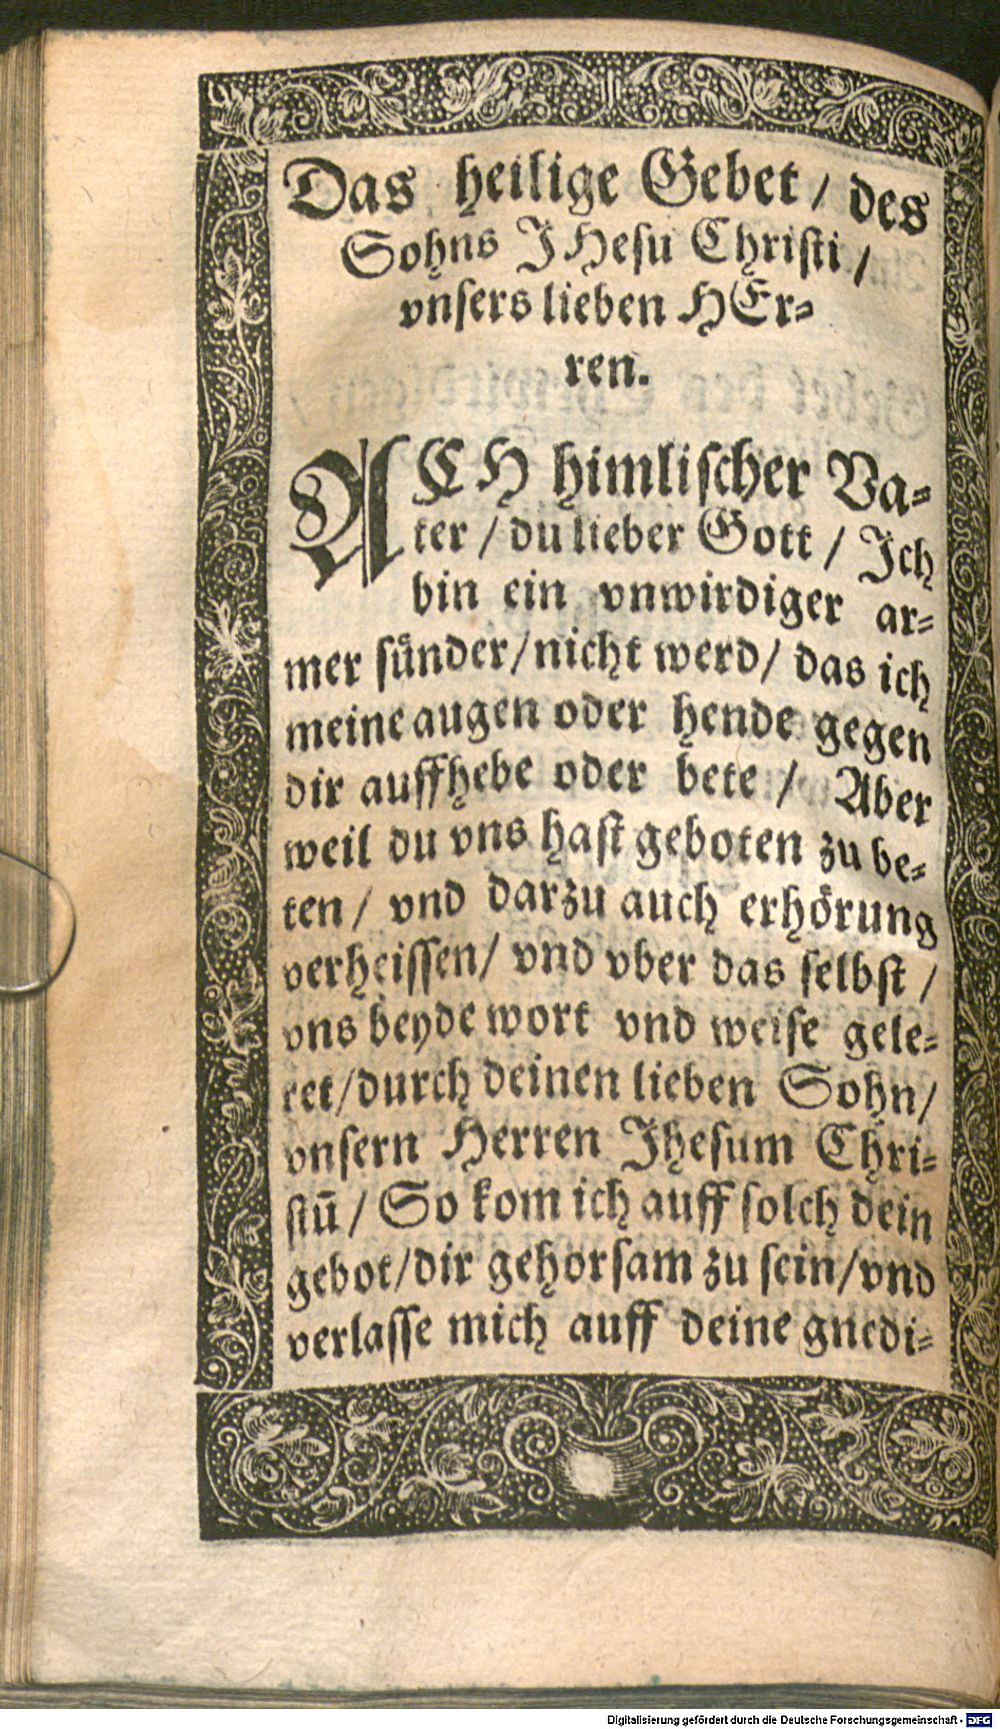 Das heilige Gebet / des
Sohns JHesu Christi /
vnsers lieben HEr⸗
ren.
ACH himlischer Va⸗
ter / du lieber Gott / Ich
bin ein vnwirdiger ar⸗
mer sünder / nicht werd / das ich
meine augen oder hende gegen
dir auffhebe oder bete / Aber
weil du vns hast geboten zu be⸗
ten / vnd darzu auch erhörung
verheissen / vnd vber das selbst /
vns beyde wort vnd weise gele⸗
ret / durch deinen lieben Sohn /
vnsern Herren Jhesum Chri⸗
stū / So kom ich auff solch dein
gebot / dir gehorsam zu sein / vnd
verlasse mich auff deine gnedi⸗
Digitalisierung gefördert durch die Deutsche Forschungsgemeinschaft - DFG